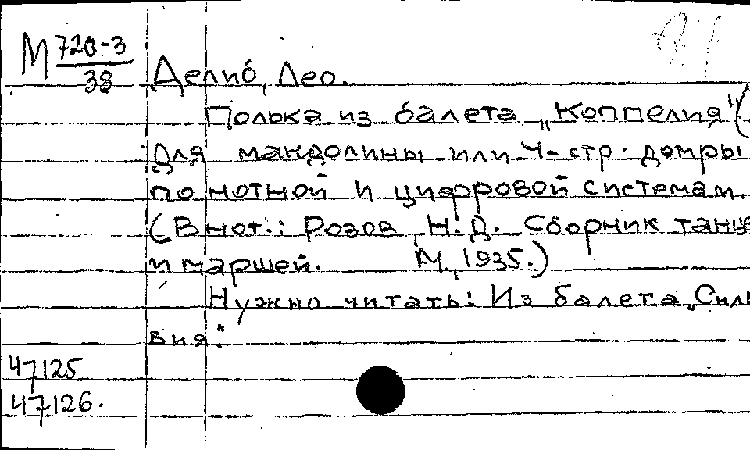 М 720-3
38
Делиб, Лео.
Полька из балета „Коппелия" (
для мандолины или 4-стр. домры
по нотной и цифровой системам.
(В нот.: Розов, Н.Д. Сборник танце
и маршей. М., 1935.)
Нужно читать: Из балета „Силь
вия".
47125
47126.